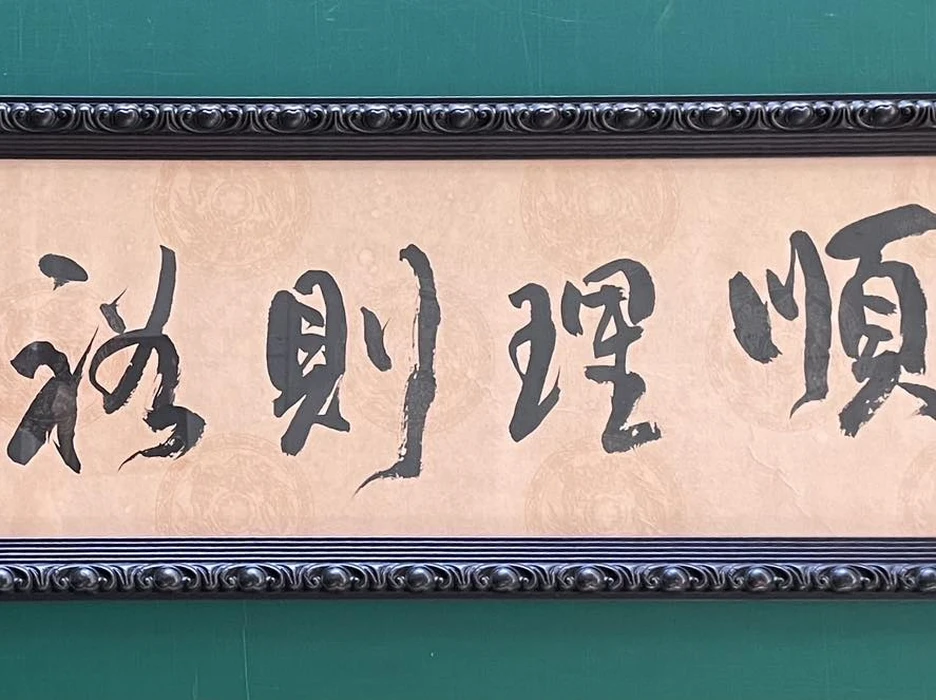 順理則裕